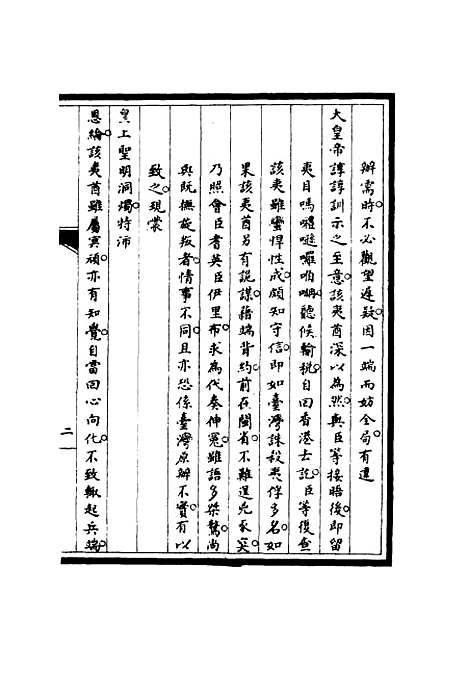 辦需時不必觀望遲疑因一端而妨全局有違
大皇帝諄諄訓示之至意該夷酋深以為然與臣等接晤後即留
夷目嗎囇𠺢囉咱㖞聽候輸税自回香港去訖臣等復查
該夷雖蠻悍性成頗知守信即如臺灣誅殺夷俘多名如
果該夷酋另有詭謀藉端背約前在閩省不難逞兇求奖
乃照會臣耆英臣伊里布求為代奏伸冤雖語多桀驁尚
與既撫旋叛者情事不同且亦恐係臺灣原辦不實有以
致之現蒙
皇上聖明洞燭特沛
恩綸該夷酋雖屬冥頑亦有知覺自當回心向化不致輙起兵端
二